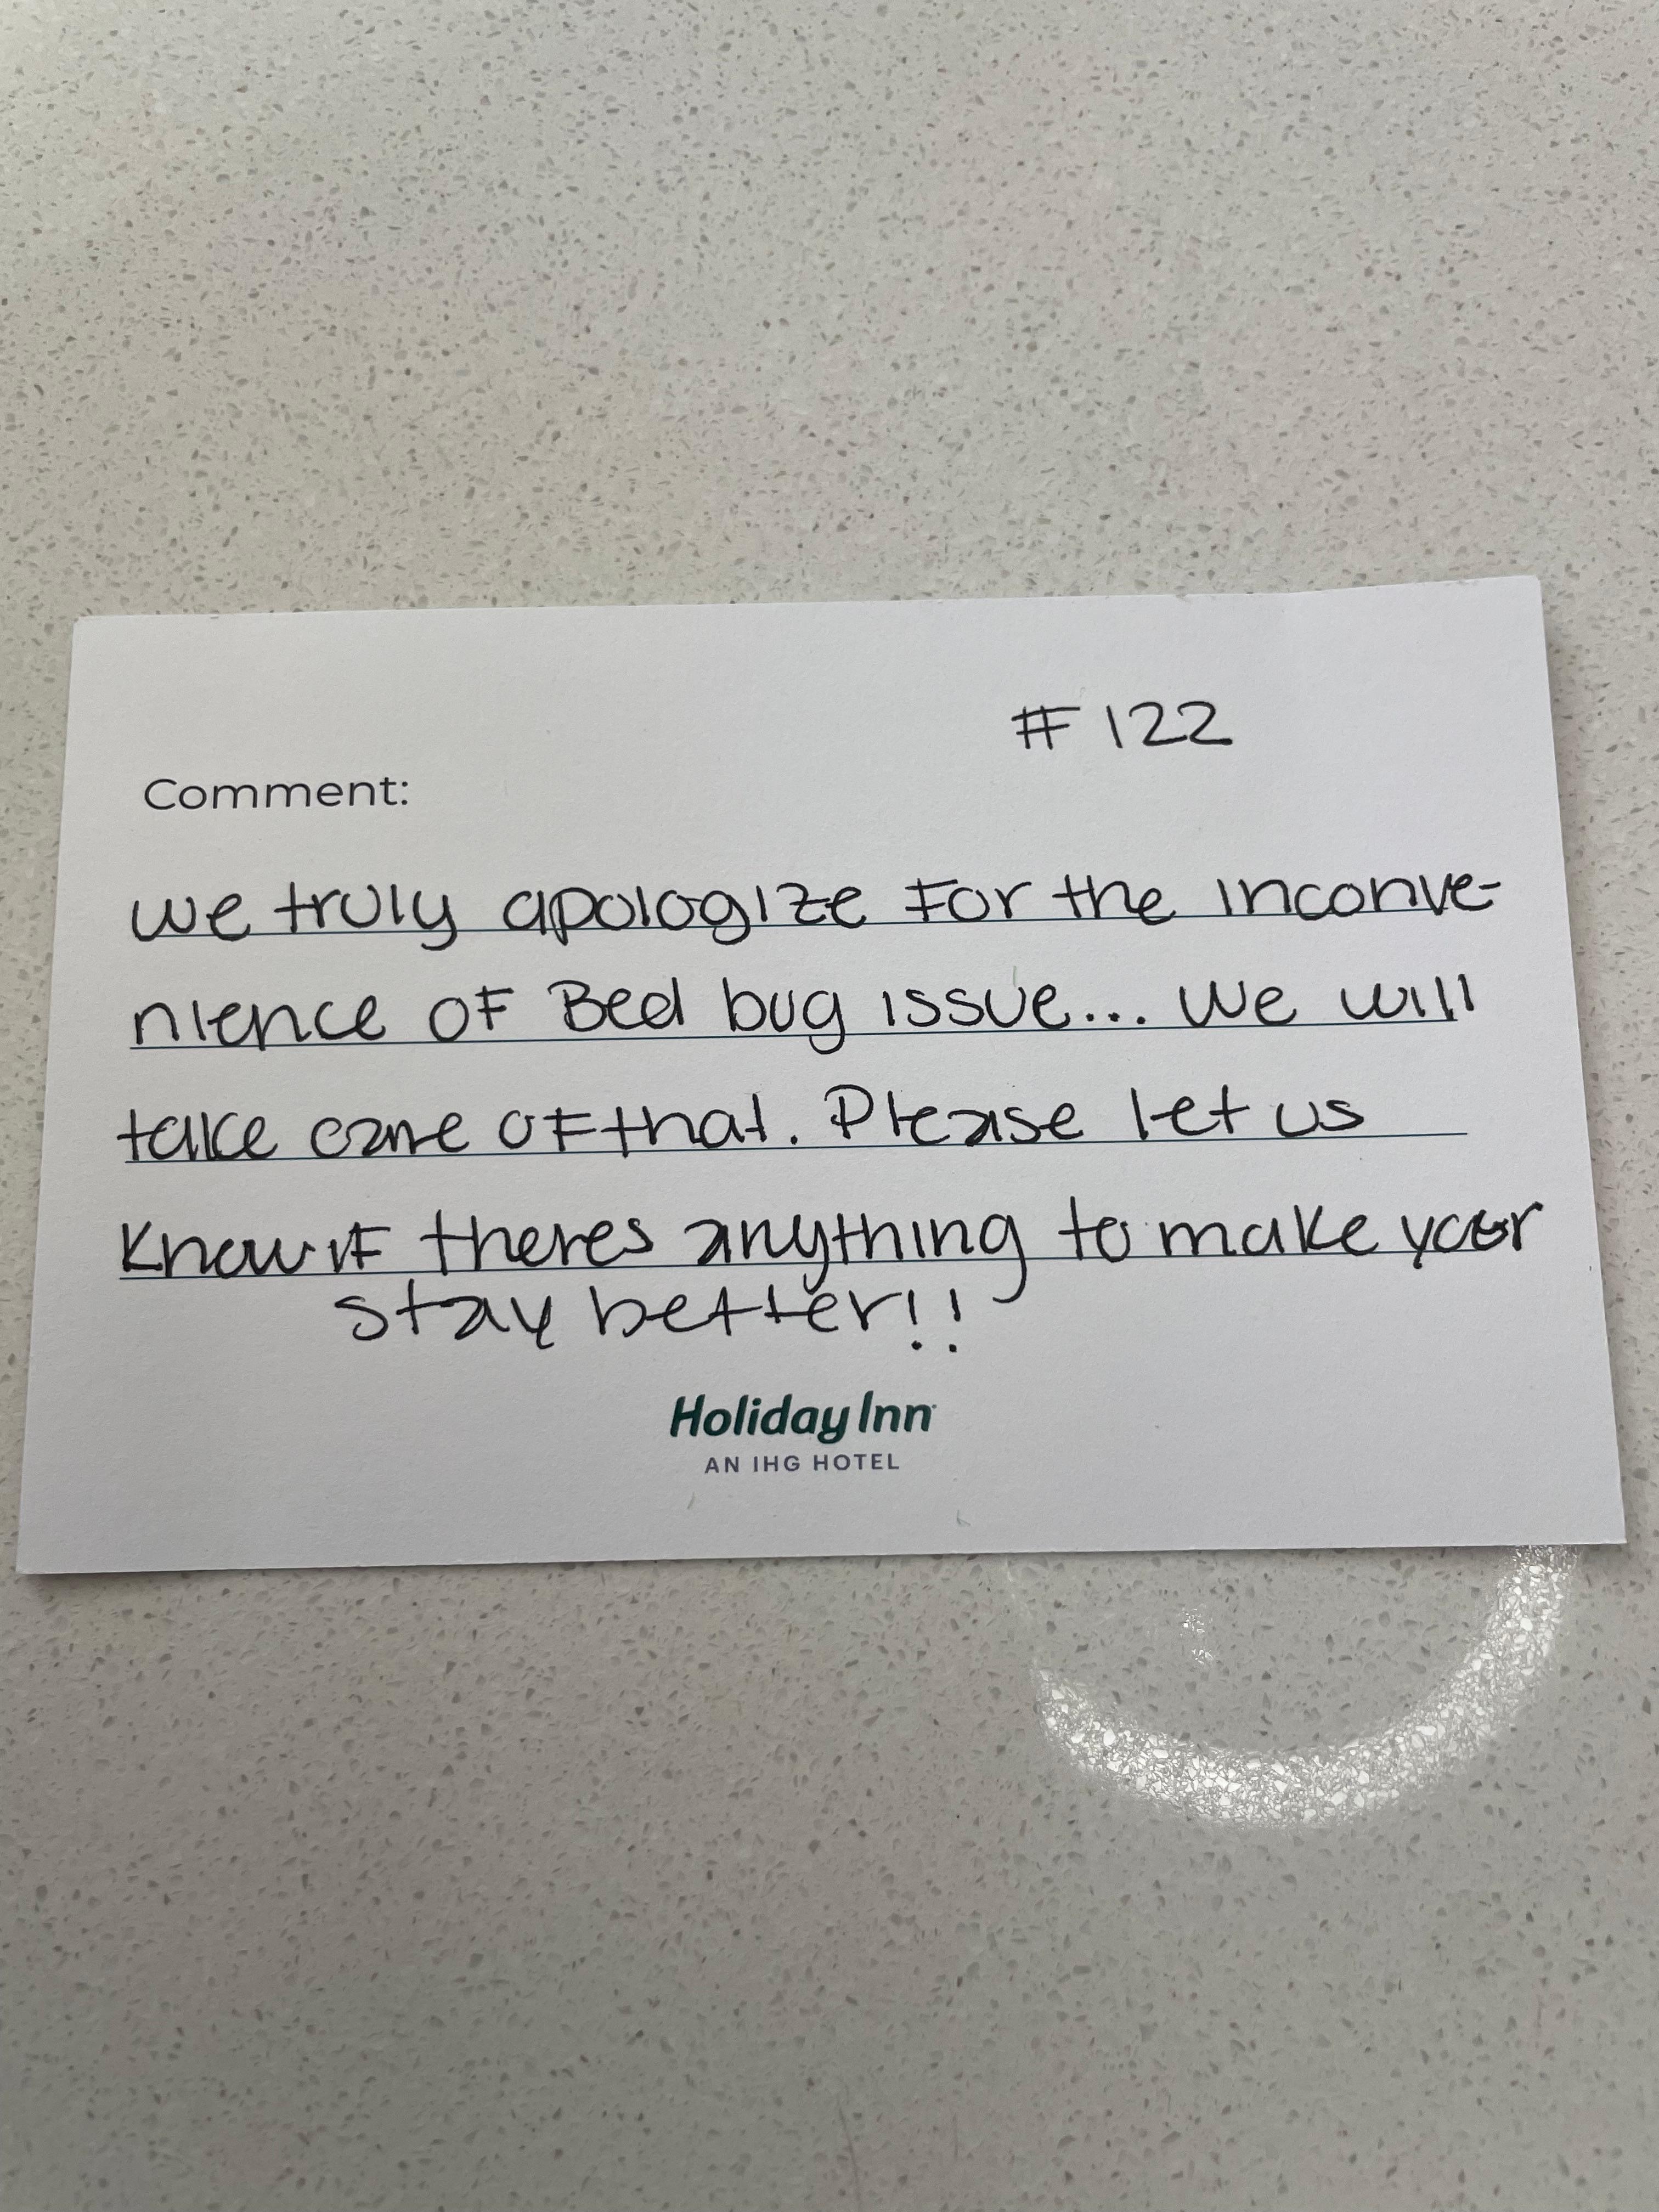 # 122
Comment:
we truly apologize For the inconve-
nience OF Bed bug issue... We will
take care OF that. Please let us
Know iF theres anything to make your
stay better!!
Holiday Inn
AN IHG HOTEL